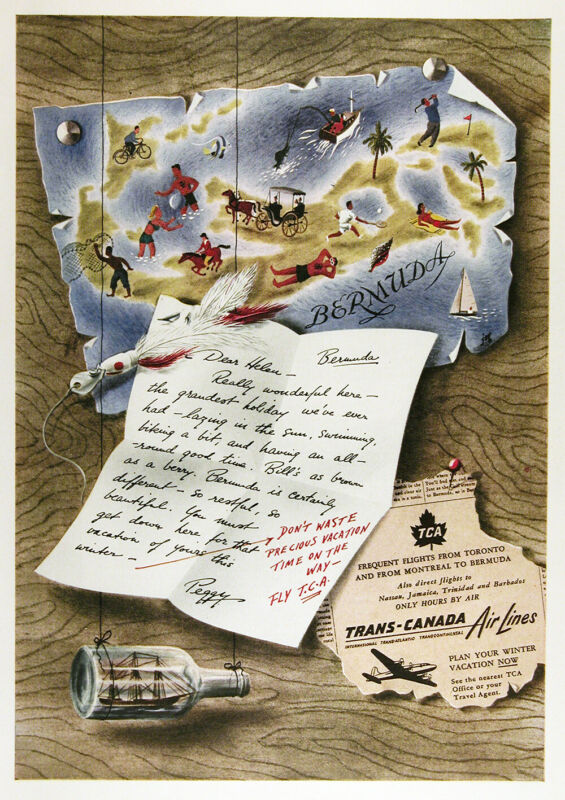 BERMUDA
Dear Helen — Bermuda
Really wonderful here —
the grandest holiday we've ever
had — lazing in the sun, swimming,
biking a bit, and having an all-
-round good time. Bill's as brown
as a berry. Bermuda is certainly
different — so restful, so
beautiful. You must
get down here for that
vacation of yours this
winter —
Peggy
DON'T WASTE
PRECIOUS VACATION
TIME ON THE
WAY —
FLY T.C.A.
TCA
FREQUENT FLIGHTS FROM TORONTO
AND FROM MONTREAL TO BERMUDA
Also direct flights to
Nassau, Jamaica, Trinidad and Barbados
ONLY HOURS BY AIR
TRANS-CANADA Air Lines
INTERNATIONAL TRANS-ATLANTIC TRANSCONTINENTAL
PLAN YOUR WINTER
VACATION NOW
See the nearest TCA
Office or your
Travel Agent.